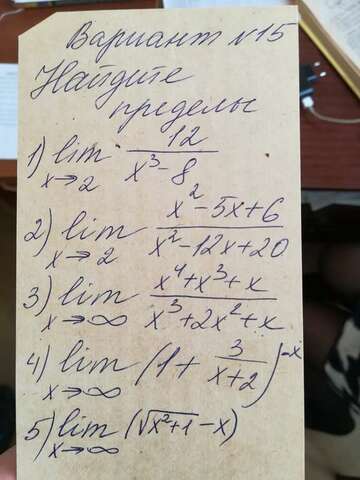 Вариант №15
Найдите
пределы
1) lim x→2 12/(x³-8)
2) lim x→2 (x²-5x+6)/(x²-12x+20)
3) lim x→∞ (x⁴+x³+x)/(x³+2x²+x)
4) lim x→∞ (1+3/(x+2))^(-x)
5) lim x→∞ (√(x²+1)-x)